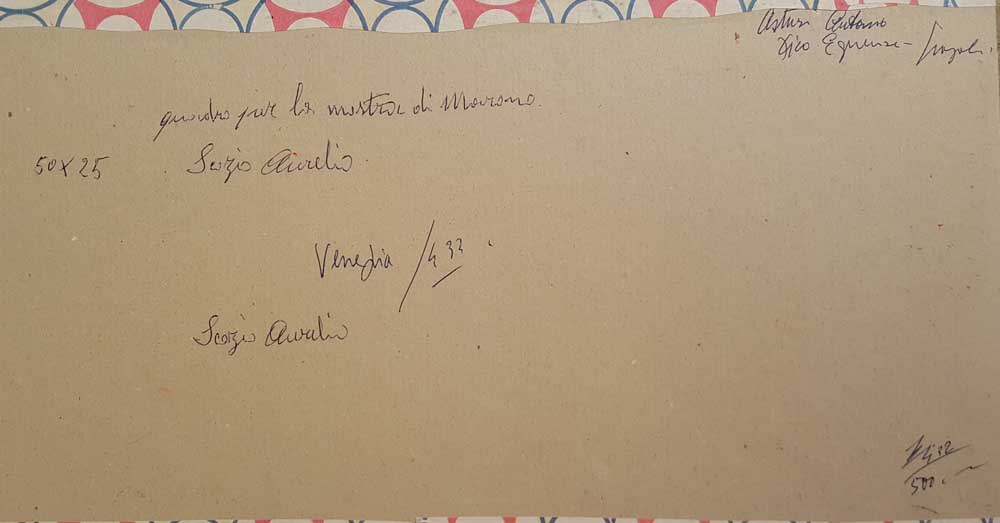 Astuni Antonio
Vico Equense - Napoli.
quadro per la mostra di Marano.
50x25
Scozio Aurelio.
Venezia / 432.
Scozio Aurelio
500.